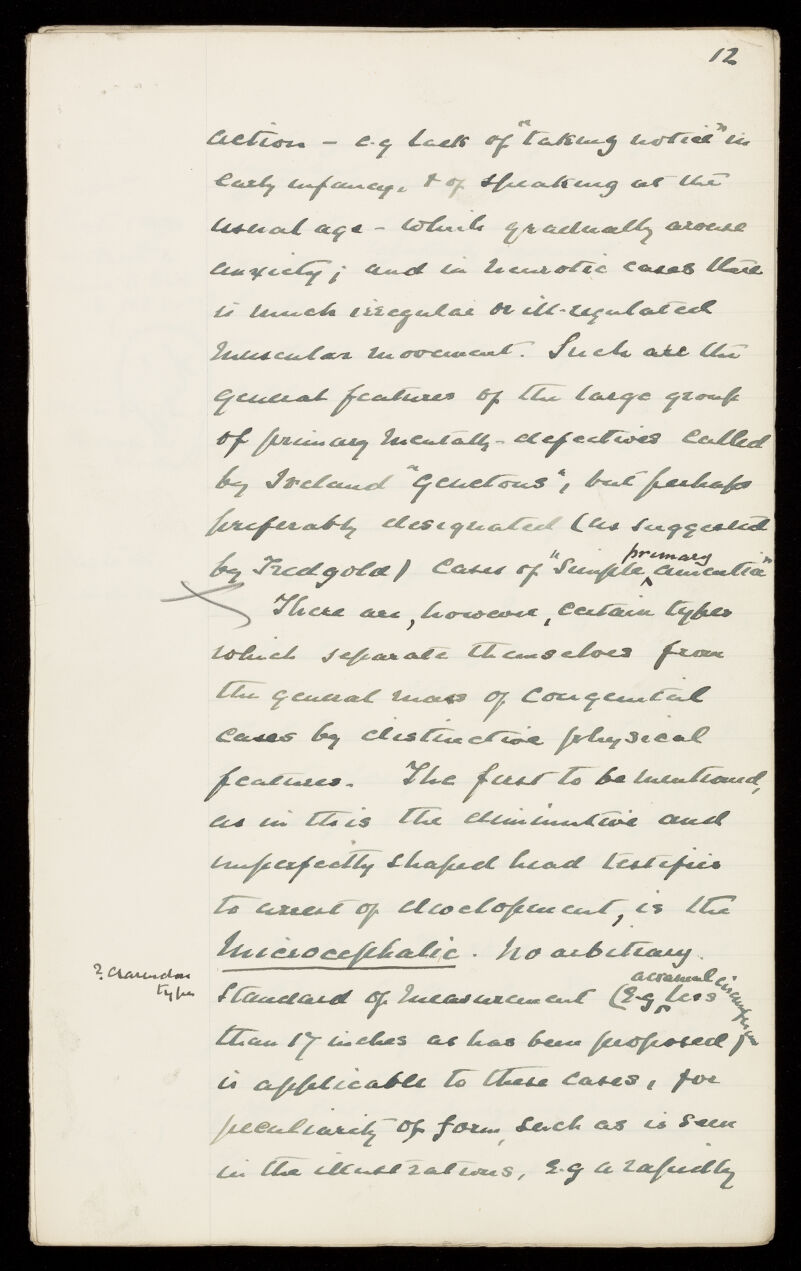 12
action - e.g lack of "taking notice" in
early infancy, & of speaking at the
usual age - which gradually arouse
anxiety; and in neurotic cases there
is much irregular or ill-regulated
muscular movement. Such are the
general features of the large group
of primary mentally-defectives called
by Ireland "Genetous", but perhaps
preferably designated (as suggested
by Tredgold) cases of "Simple primary amentia"
There are, however, certain types
which separate themselves from
the general mass of congenital
cases by distinctive physical
features. The first to be mentioned,
as in this the diminutive and
imperfectly shaped head testifies
to arrest of development, is the
Microcephalic. No arbitrary
? Clarendon
type
Standard of measurement (E.g a cranial circumference less
than 17 inches as has been proposed)
is applicable to these cases, for
peculiarity of form, such as is seen
in the illustrations, E.g a rapidly